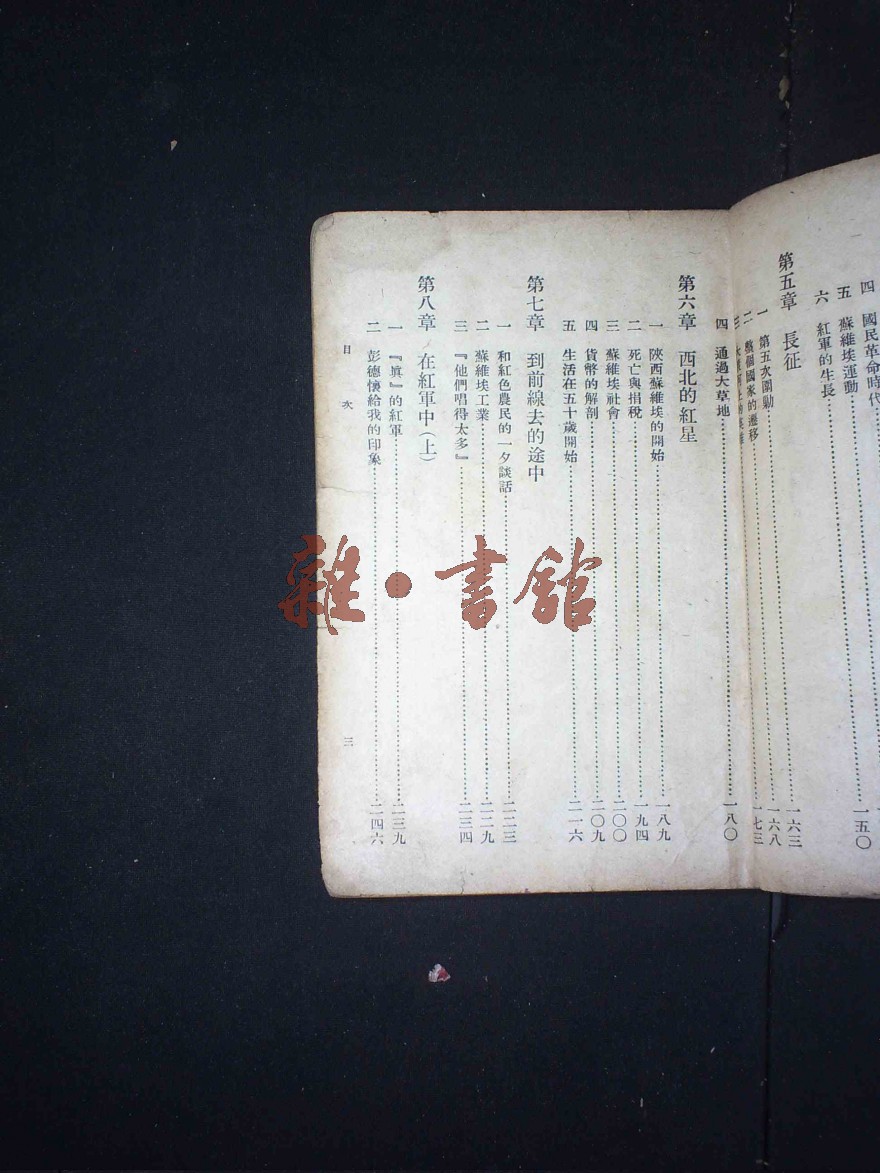 四 國民革命時代
五 蘇維埃運動 一五〇
六 紅軍的生長
第五章 長征
一 第五次圍勦 一六三
二 整個國家的遷移 一六八
三 一七三
四 通過大草地 一八〇
第六章 西北的紅星
一 陝西蘇維埃的開始 一八九
二 死亡與捐稅 一九四
三 蘇維埃社會 二〇〇
四 貨幣的解剖 二〇九
五 生活在五十歲開始 二一六
第七章 到前線去的途中
一 和紅色農民的一夕談話 二二三
二 蘇維埃工業 二二九
三 『他們唱得太多』 二三四
第八章 在紅軍中(上)
一 『眞』的紅軍 二三九
二 彭德懷給我的印象 二四六
目次 三
雜·書館